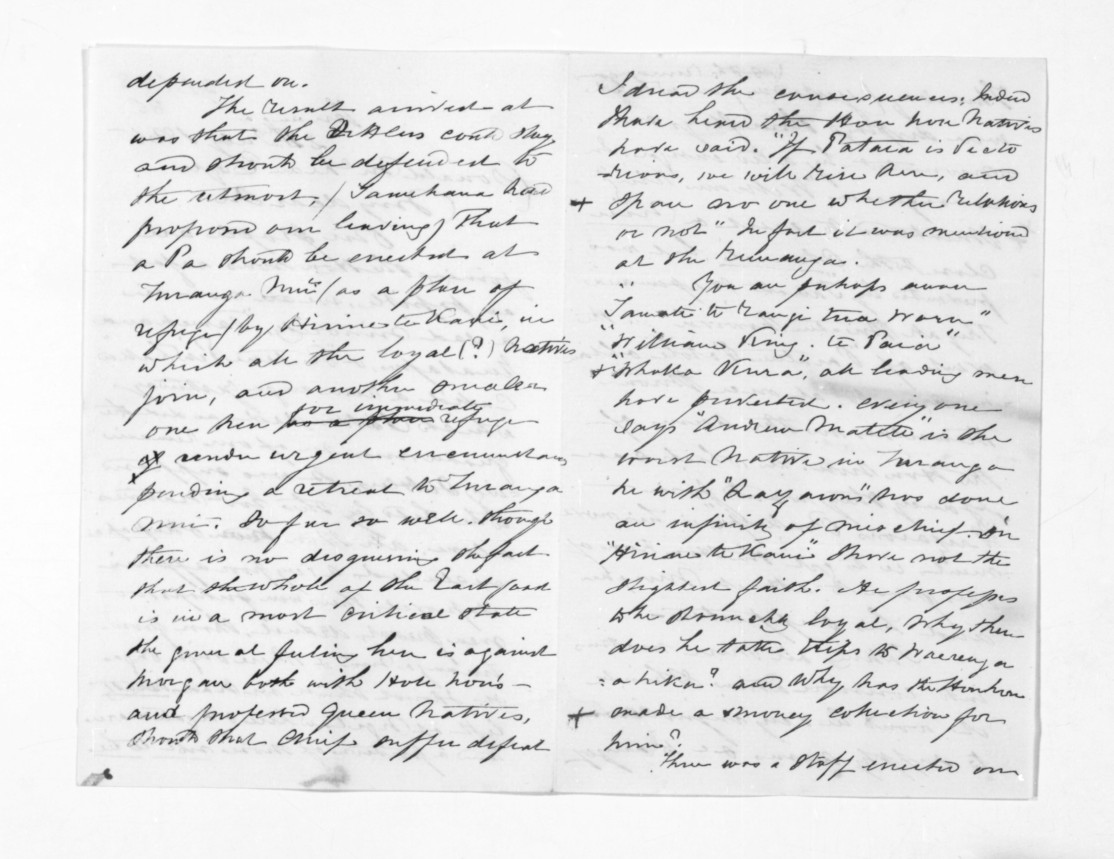 depended on.
The result arrived at
was that the settlers could stay
and should be defended to
the utmost, (Tamihana had
proposed our leaving) that
a Pa should be erected at
Turanga Nui (as a place of
refuge) by Hirini te Kani, in
which all the loyal (?) Natives
join, and another smaller
one here as a place for immediate refuge
under urgent circumstances
pending a retreat to Turanga
Nui. So far so well. though
there is no disguising the fact
that the whole of the East Coast
is in a most critical state
the general feeling here is against
Morgan both with Hau hau's -
and professed Queen Natives,
should that Chief suffer defeat
I dread the consequences. Indeed
I have heard the Hau hau Natives
have said. "If Patara is victo
-rious, we will rise here, and
+ spare no one whether relations
or not" In fact it was mentioned
at the Runangas.
You are perhaps aware
"Tamati te Rangi tua Waru"
"William King. te Paia"
+ "Whaka Kura", all leading men
have perverted. everyone
says "Andrew Matete" is the
worst Native in Turanga
he with has done
an infinity of mischief. In
"Hirini te Kani" I have not the
slightest faith. He professes
to be staunchly loyal, why then
does he take trips to Waerenga
-a-hika? and Why has the Hauhau
+ made a money collection for
him?
There was a staff erected on